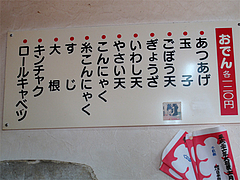 おでん 各一二〇円
あつあげ
玉子
ごぼう天
ぎょうざ
いわし天
やさい天
こんにゃく
糸こんにゃく
すじ
大根
キンチャク
ロールキャベツ